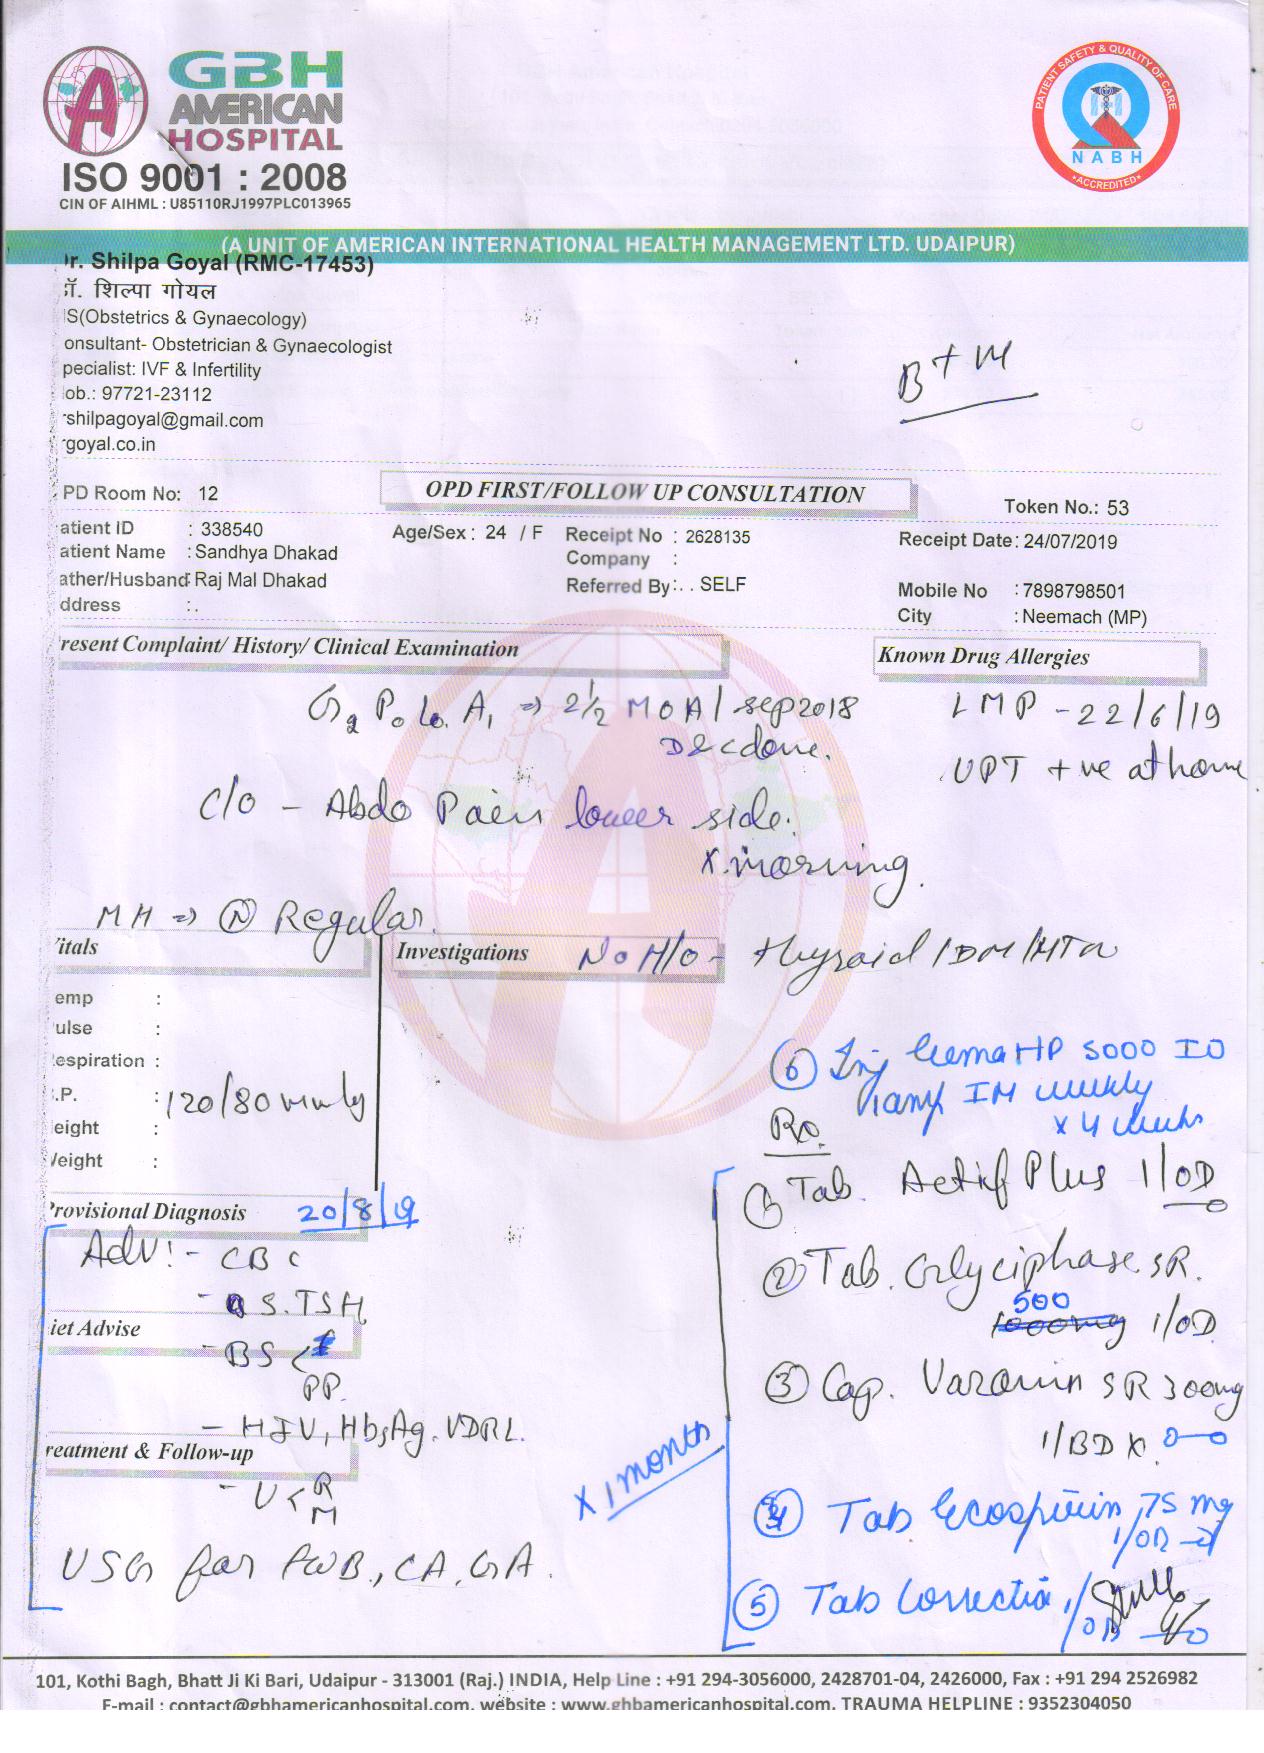 GBH
AMERICAN
HOSPITAL
ISO 9001 : 2008
CIN OF AIHML : U85110RJ1997PLC013965
PATIENT SAFETY & QUALITY OF CARE
NABH
ACCREDITED
(A UNIT OF AMERICAN INTERNATIONAL HEALTH MANAGEMENT LTD. UDAIPUR)
r. Shilpa Goyal (RMC-17453)
ॉ. शिल्पा गोयल
S(Obstetrics & Gynaecology)
onsultant- Obstetrician & Gynaecologist
pecialist: IVF & Infertility
ob.: 97721-23112
rshilpagoyal@gmail.com
rgoyal.co.in
B+ve
PD Room No: 12
OPD FIRST/FOLLOW UP CONSULTATION
Token No.: 53
atient ID : 338540 Age/Sex : 24 / F Receipt No : 2628135 Receipt Date: 24/07/2019
atient Name : Sandhya Dhakad Company :
ather/Husband: Raj Mal Dhakad Referred By:. . SELF Mobile No :7898798501
ddress :. City : Neemach (MP)
resent Complaint/ History/ Clinical Examination
Known Drug Allergies
G2 P0 L0 A1 => 2½ MOA / sep 2018
D&C done.
LMP - 22/6/19
UPT +ve at home
C/O - Abdo Pain lower side.
x morning.
MH => (N) Regular.
itals
Investigations
No H/O - thyroid / DM / HTN
emp :
ulse :
espiration :
.P. : 120/80 mmHg
eight :
Weight :
6 Inj HP 5000 IU
IM weekly
x 4 weeks
Rx.
1) Tab. Actif Plus 1/OD
2) Tab. Glyciphase SR.
500
1000mg 1/OD
3) Cap. Varanin SR 300mg
1/BD x
4) Tab Ecospirin 75 mg
1/OD
5) Tab Correctia 1/OD
x 1 month
rovisional Diagnosis 20/8/19
Adv:- CBC
- S.TSH
iet Advise
- BS < F
PP.
- HIV, HbsAg. VDRL.
reatment & Follow-up
- U < R
M
USG for FWB, CA, GA.
101, Kothi Bagh, Bhatt Ji Ki Bari, Udaipur - 313001 (Raj.) INDIA, Help Line : +91 294-3056000, 2428701-04, 2426000, Fax : +91 294 2526982
E-mail : contact@gbhamericanhospital.com, website : www.gbhamericanhospital.com, TRAUMA HELPLINE : 9352304050